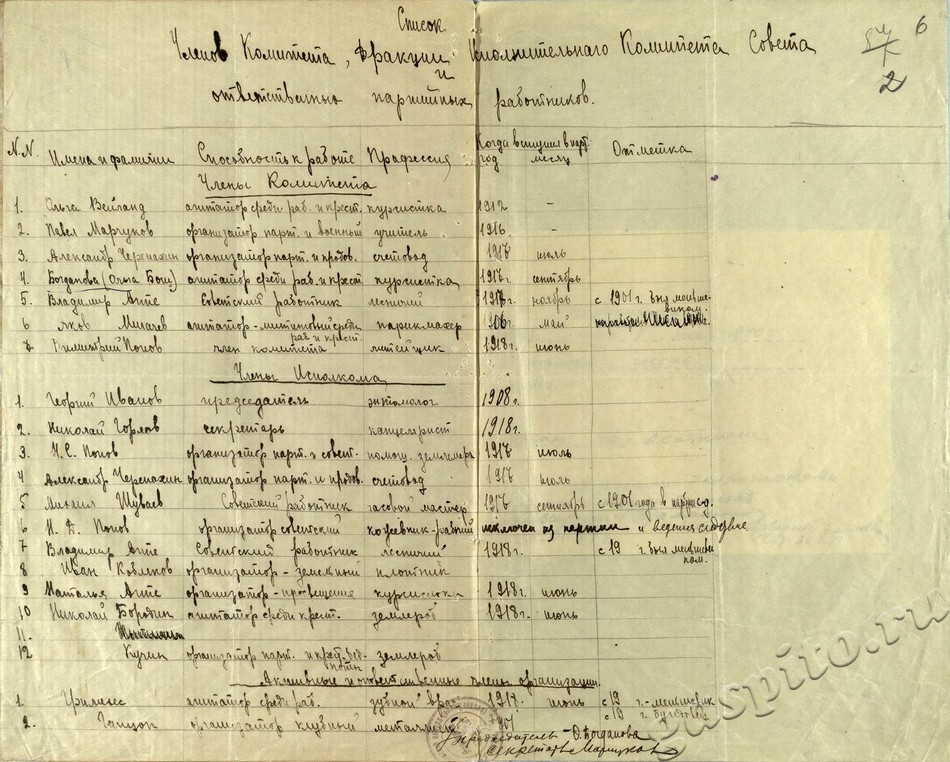 Список
Членов Комитета, Фракции Исполнительнаго Комитета Совета
и
ответственно партийных работников.
6
2
N.N. Имена и фамилии Способность к работе Профессия Когда вступил в парт. Отметка
год месяц
Члены Комитета
1. Ольга Вейланд агитатор среди раб. и крест. курсистка 1912 -
2. Павел Марчуков организатор парт. и военный учитель 1916 -
3. Александр Черепахин организатор парт. и продов. счетовод 1917 июль
4. Богданова (Ольга Бош) агитатор среди раб. и крест. курсистка 1917г. сентябрь
5. Владимир Анте Советский работник лесничий 1917г. ноябрь с 1901г. был меньше-
виком.
6 Яков Минаев агитатор-митинговый среди парикмахер 1906г. май
раб. и крест.
7 Димитрий Попов член комитета литейщик 1918г. июнь
Члены Исполкома
1. Георгий Иванов председатель энтомолог 1908г.
2. Николай Горлов секретарь канцелярист 1918г.
3. Н.С. Попов организатор парт. и совет. помощ. землемера 1917 июль
4 Александр Черепахин организатор парт. и продов. счетовод 1917 июль
5 Михаил Шуваев Советский работник часовой мастер 1917 сентябрь с 1901 года в
6 Н. Ф. Попов организатор советский кожевник-рабочий исключен из партии и ведется следствие
7 Владимир Анте Советский работник лесничий 1918г. с 19 г. был меньшеви
ком.
8 Иван Ковляков организатор-земельный плотник
9 Наталья Анте организатор-просвещения курсистка 1918г. июнь
10 Николай Бородин агитатор среди крест. землероб 1918г. июнь
11.
12 Кучин организатор парт. и крест. бед- землероб
ноты
Активные и ответственные члены организации.
1. агитатор среди раб. зубной врач 1917 июнь с 19 г.-меньшевик
2. Ганцон организатор клубный металлист с 19 г.
Председатель - О. Богданова
Секретарь Марчуков
gaspito.ru